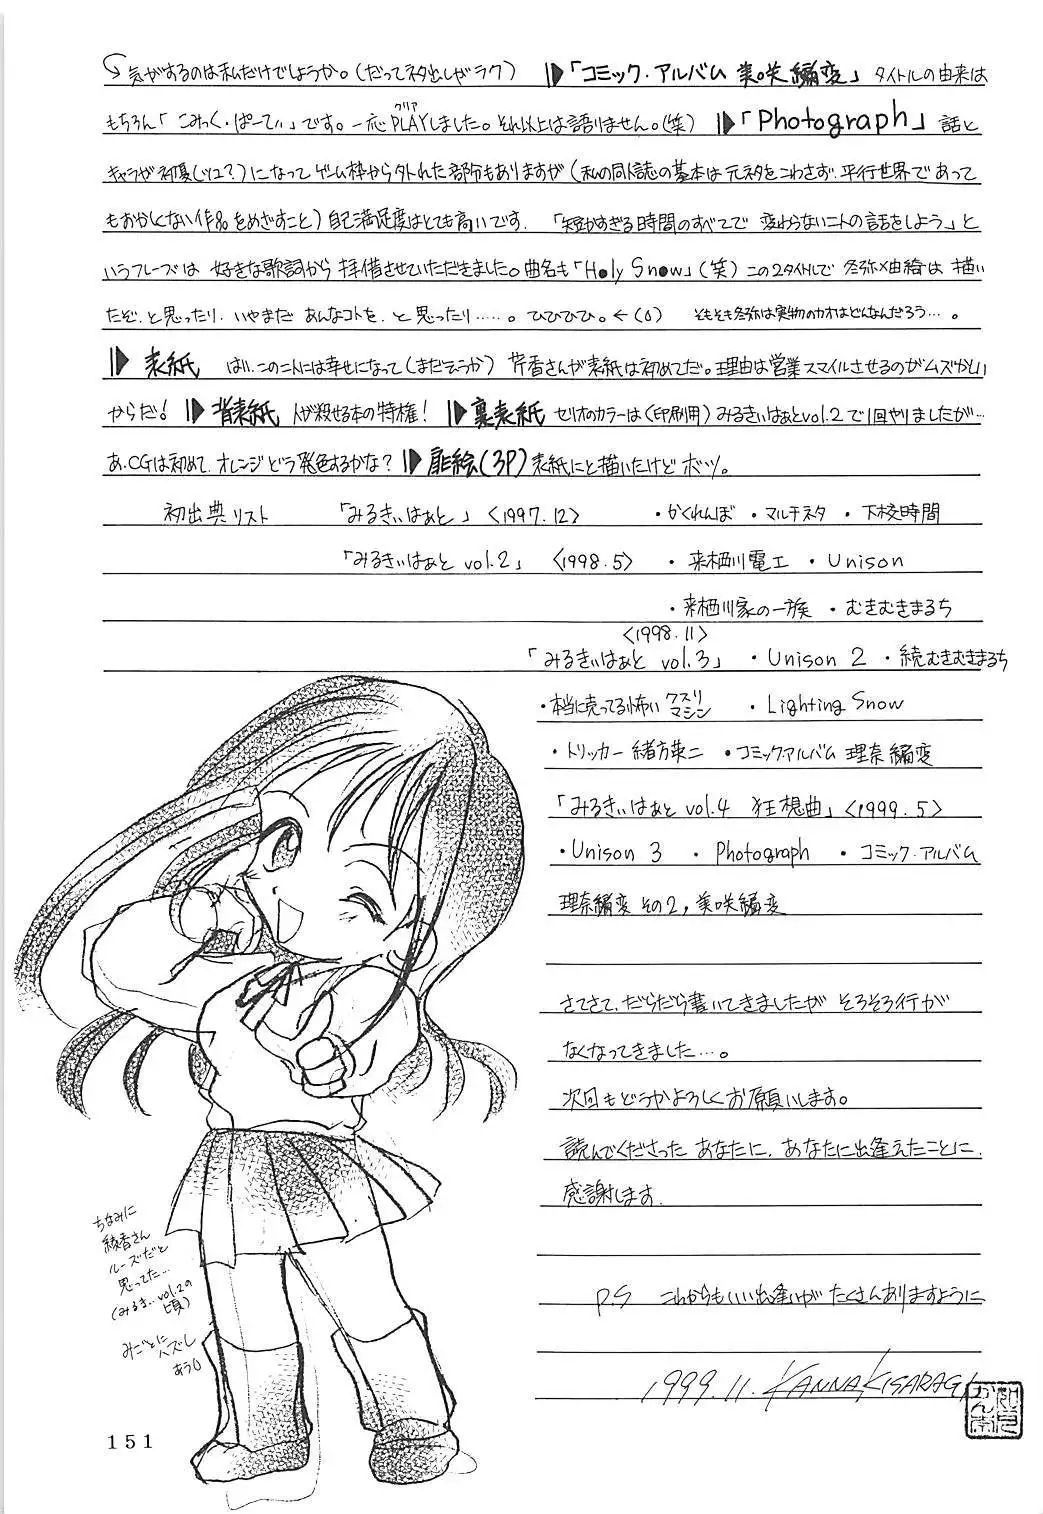 気がするのは私だけでしょうか。(だってネタ出しがラク) 「コミック・アルバム 美咲編変」 タイトルの由来は
もちろん「こみっく・ぱーてぃ」です。一応PLAYしました。それ以上は語りません。(笑) 「Photograph」 話と
クリア
キャラが初夏(ツユ?)になってゲーム枠から外れた部分もありますが(私の同人誌の基本は元ネタをこわさず、平行世界であって
もおかしくない作品をめざすこと)自己満足度はとても高いです。「短かすぎる時間のすべてで 変わらない二人の話をしよう」と
いうフレーズは 好きな歌詞から拝借させていただきました。曲名も「Holy Snow」(笑)この2タイトルで 冬弥×由綺は 描い
たぞ、と思ったり、いやまだ あんなコトを、と思ったり……。ひひひひ。←(o) そもそも冬弥は実物のカオはどんなんだろう…。
表紙 はい、この二人には幸せになって(まだそうか) 芹香さんが表紙は初めてだ。理由は営業スマイルさせるのがムズかしい
からだ! 背表紙 人が殺せる本の特権! 裏表紙 セリオのカラーは(印刷用)みるきぃはぁとvol.2で1回やりましたが…
あ、CGは初めて、オレンジどう発色するかな? 扉絵(3P) 表紙にと描いたけどボツ。
初出典リスト 「みるきぃはぁと」<1997.12> ・かくれんぼ ・マルチネタ ・下校時間
「みるきぃはぁと vol.2」 <1998.5> ・来栖川電工 ・Unison
・来栖川家の一族 ・むきむきまるち
<1998.11>
「みるきぃはぁと vol.3」 ・Unison 2 ・続むきむきまるち
・本当に売ってる怖い クスリ マシン ・Lighting Snow
・トリッカー緒方英二 ・コミックアルバム 理奈編変
「みるきぃはぁと vol.4 狂想曲」<1999.5>
・Unison 3 ・Photograph ・コミック・アルバム
理奈編変 その2, 美咲編変
さてさて、だらだら書いてきましたが そろそろ行が
なくなってきました…。
次回もどうかよろしくお願いします。
読んでくださった あなたに、あなたに出逢えたことに
感謝します。
P.S これからもいい出逢いが たくさんありますように
1999.11. KANNA KISARAGI
如月
かん奈
ちなみに
綾香さん
ルーズだと
思ってた…
(みるき..vol.2の
頃)
みごとに
ハズし
あうぅ
151